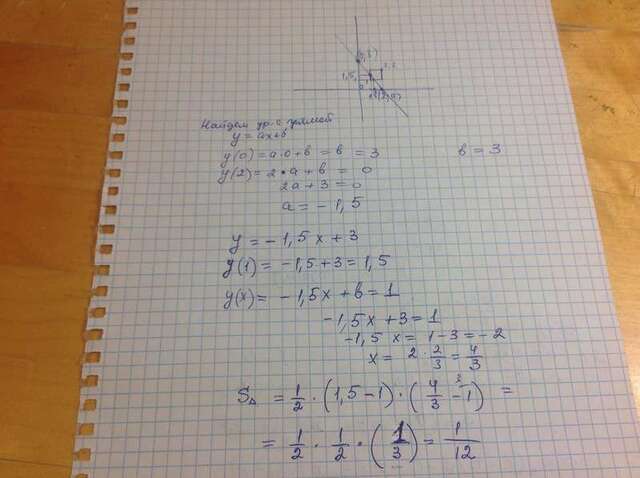 1,5
Найдем ур-е прямой
y = ax+b
y(0) = a·0+b = b = 3 b = 3
y(2) = 2·a+b = 0
2a+3=0
a = -1,5
y = -1,5x+3
y(1) = -1,5+3=1,5
y(x) = -1,5x+b=1
-1,5x+3=1
-1,5 x = 1-3=-2
x = 2·2/3 = 4/3
S△ = 1/2 · (1,5-1) · (4/3 - 1) =
= 1/2 · 1/2 · (1/3) = 1/12